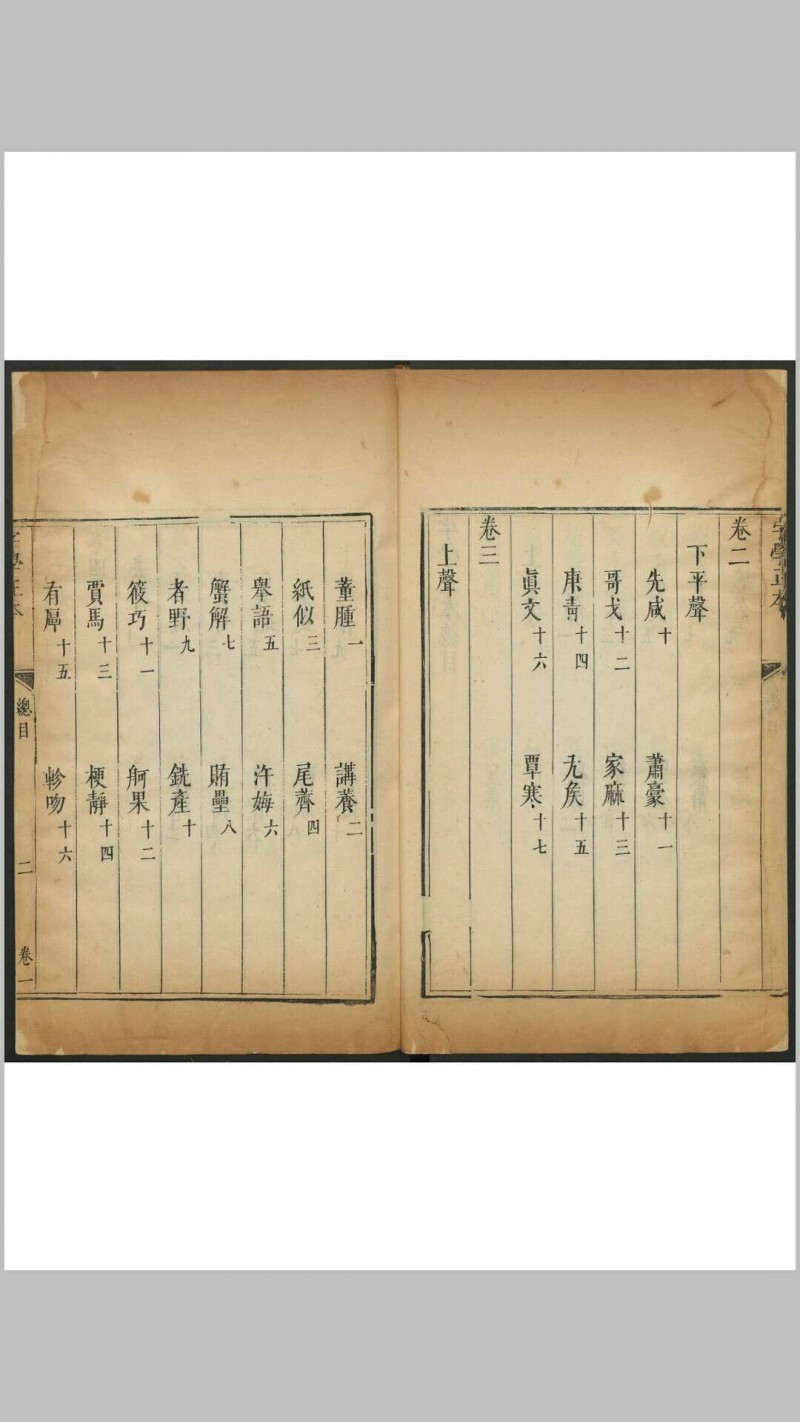 字學正本
卷二
下平聲
先咸十 蕭豪十一
哥戈十二 家麻十三
庚青十四 尤矦十五
眞文十六 覃寒十七
卷三
上聲
董腫一 講養二
紙似三 尾薺四
舉語五 許姆六
蟹解七 賄壘八
者野九 銑產十
篠巧十一 舸果十二
賈馬十三 梗靜十四
有厚十五 軫吻十六
字學正本 總目 二 卷一